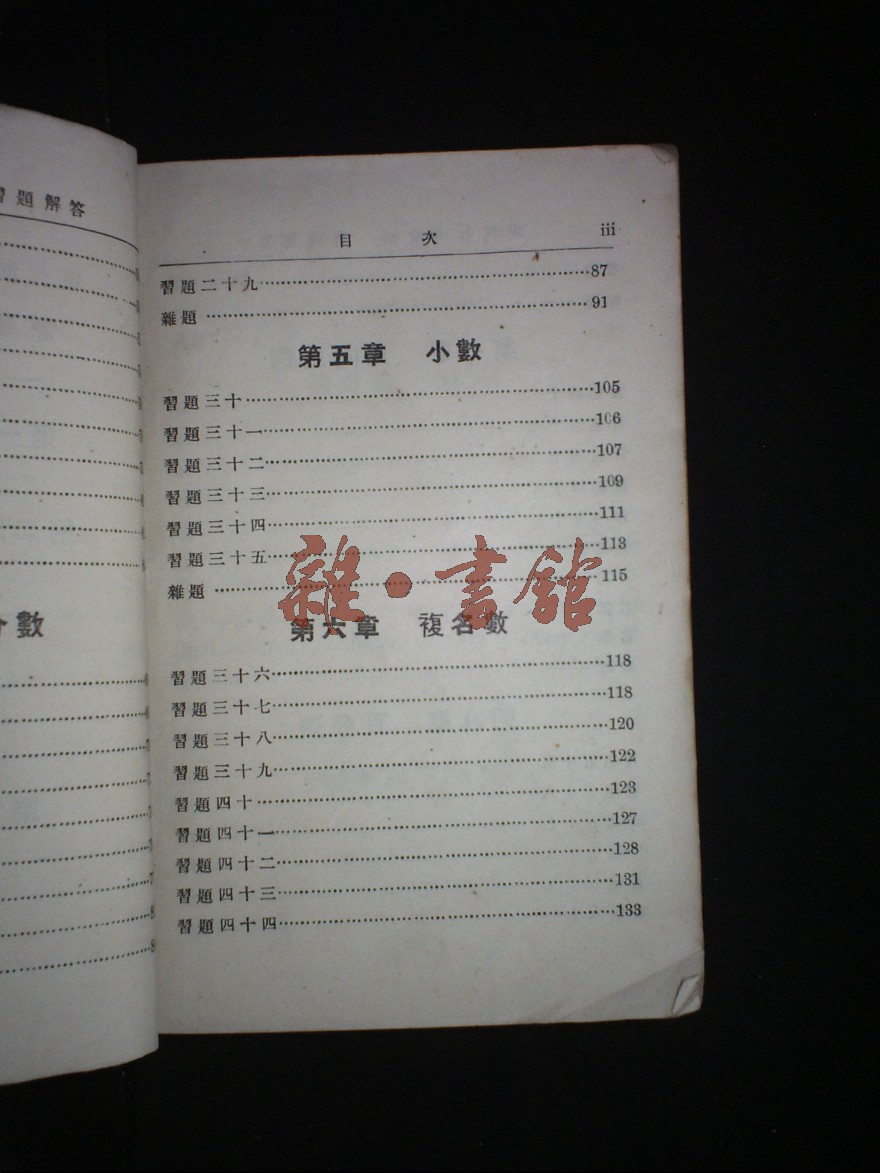 習題解答
數
目 次 iii
習題二十九……87
雜題……91
第五章 小數
習題三十……105
習題三十一……106
習題三十二……107
習題三十三……109
習題三十四……111
習題三十五……113
雜題……115
雜·書館
第六章 複名數
習題三十六……118
習題三十七……118
習題三十八……120
習題三十九……122
習題四十……123
習題四十一……127
習題四十二……128
習題四十三……131
習題四十四……133